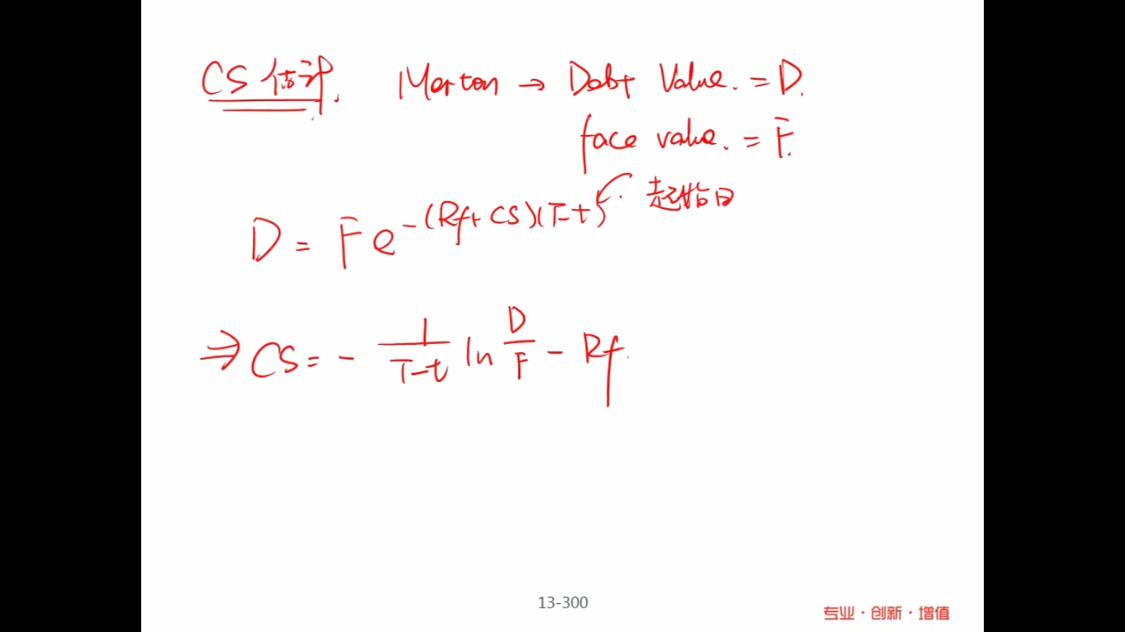 CS 估计. Merton → Debt Value. = D.
face value. = F.
D = F e^{-(Rf+CS)(T-t)} 起始日
⇒ CS = - \frac{1}{T-t} ln \frac{D}{F} - Rf.
13-300
专业·创新·增值